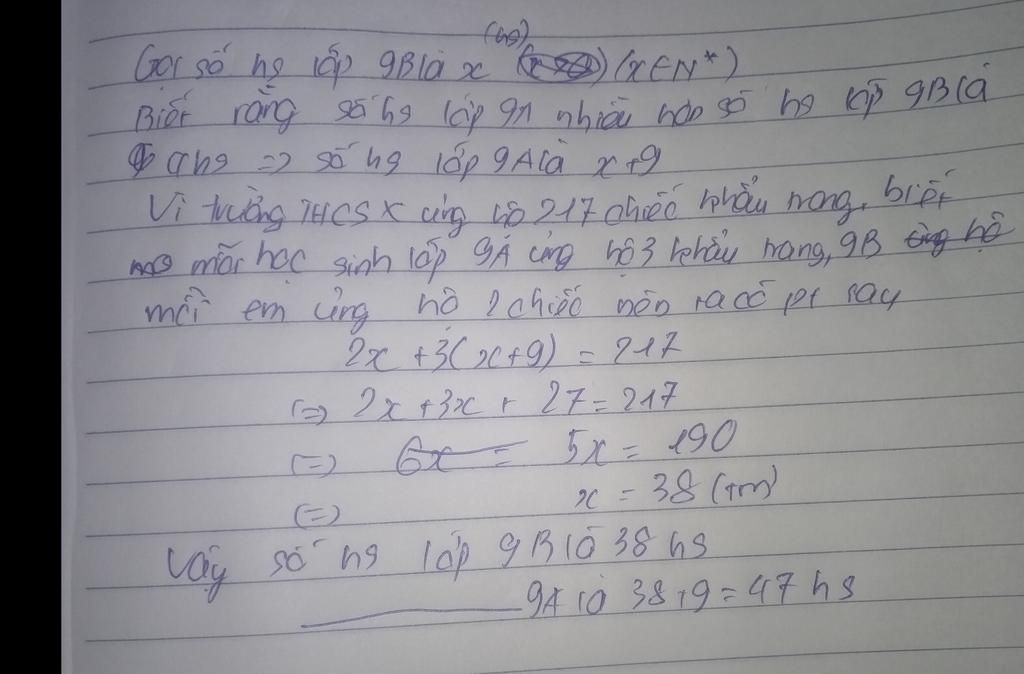 (hs)
Gọi số hs lớp 9B là x (x∈N*)
Biết rằng số hs lớp 9A nhiều hơn số hs lớp 9B là
9hs => số hs lớp 9A là x+9
Vì trường THCS X ủng hộ 217 chiếc khẩu trang, biết
mỗi học sinh lớp 9A ủng hộ 3 khẩu trang, 9B
mỗi em ủng hộ 2 chiếc nên ta có pt sau
2x + 3(x+9) = 217
(=) 2x + 3x + 27 = 217
(=) 5x = 190
(=) x = 38 (tm)
Vậy số hs lớp 9B là 38 hs
9A là 38+9 = 47 hs